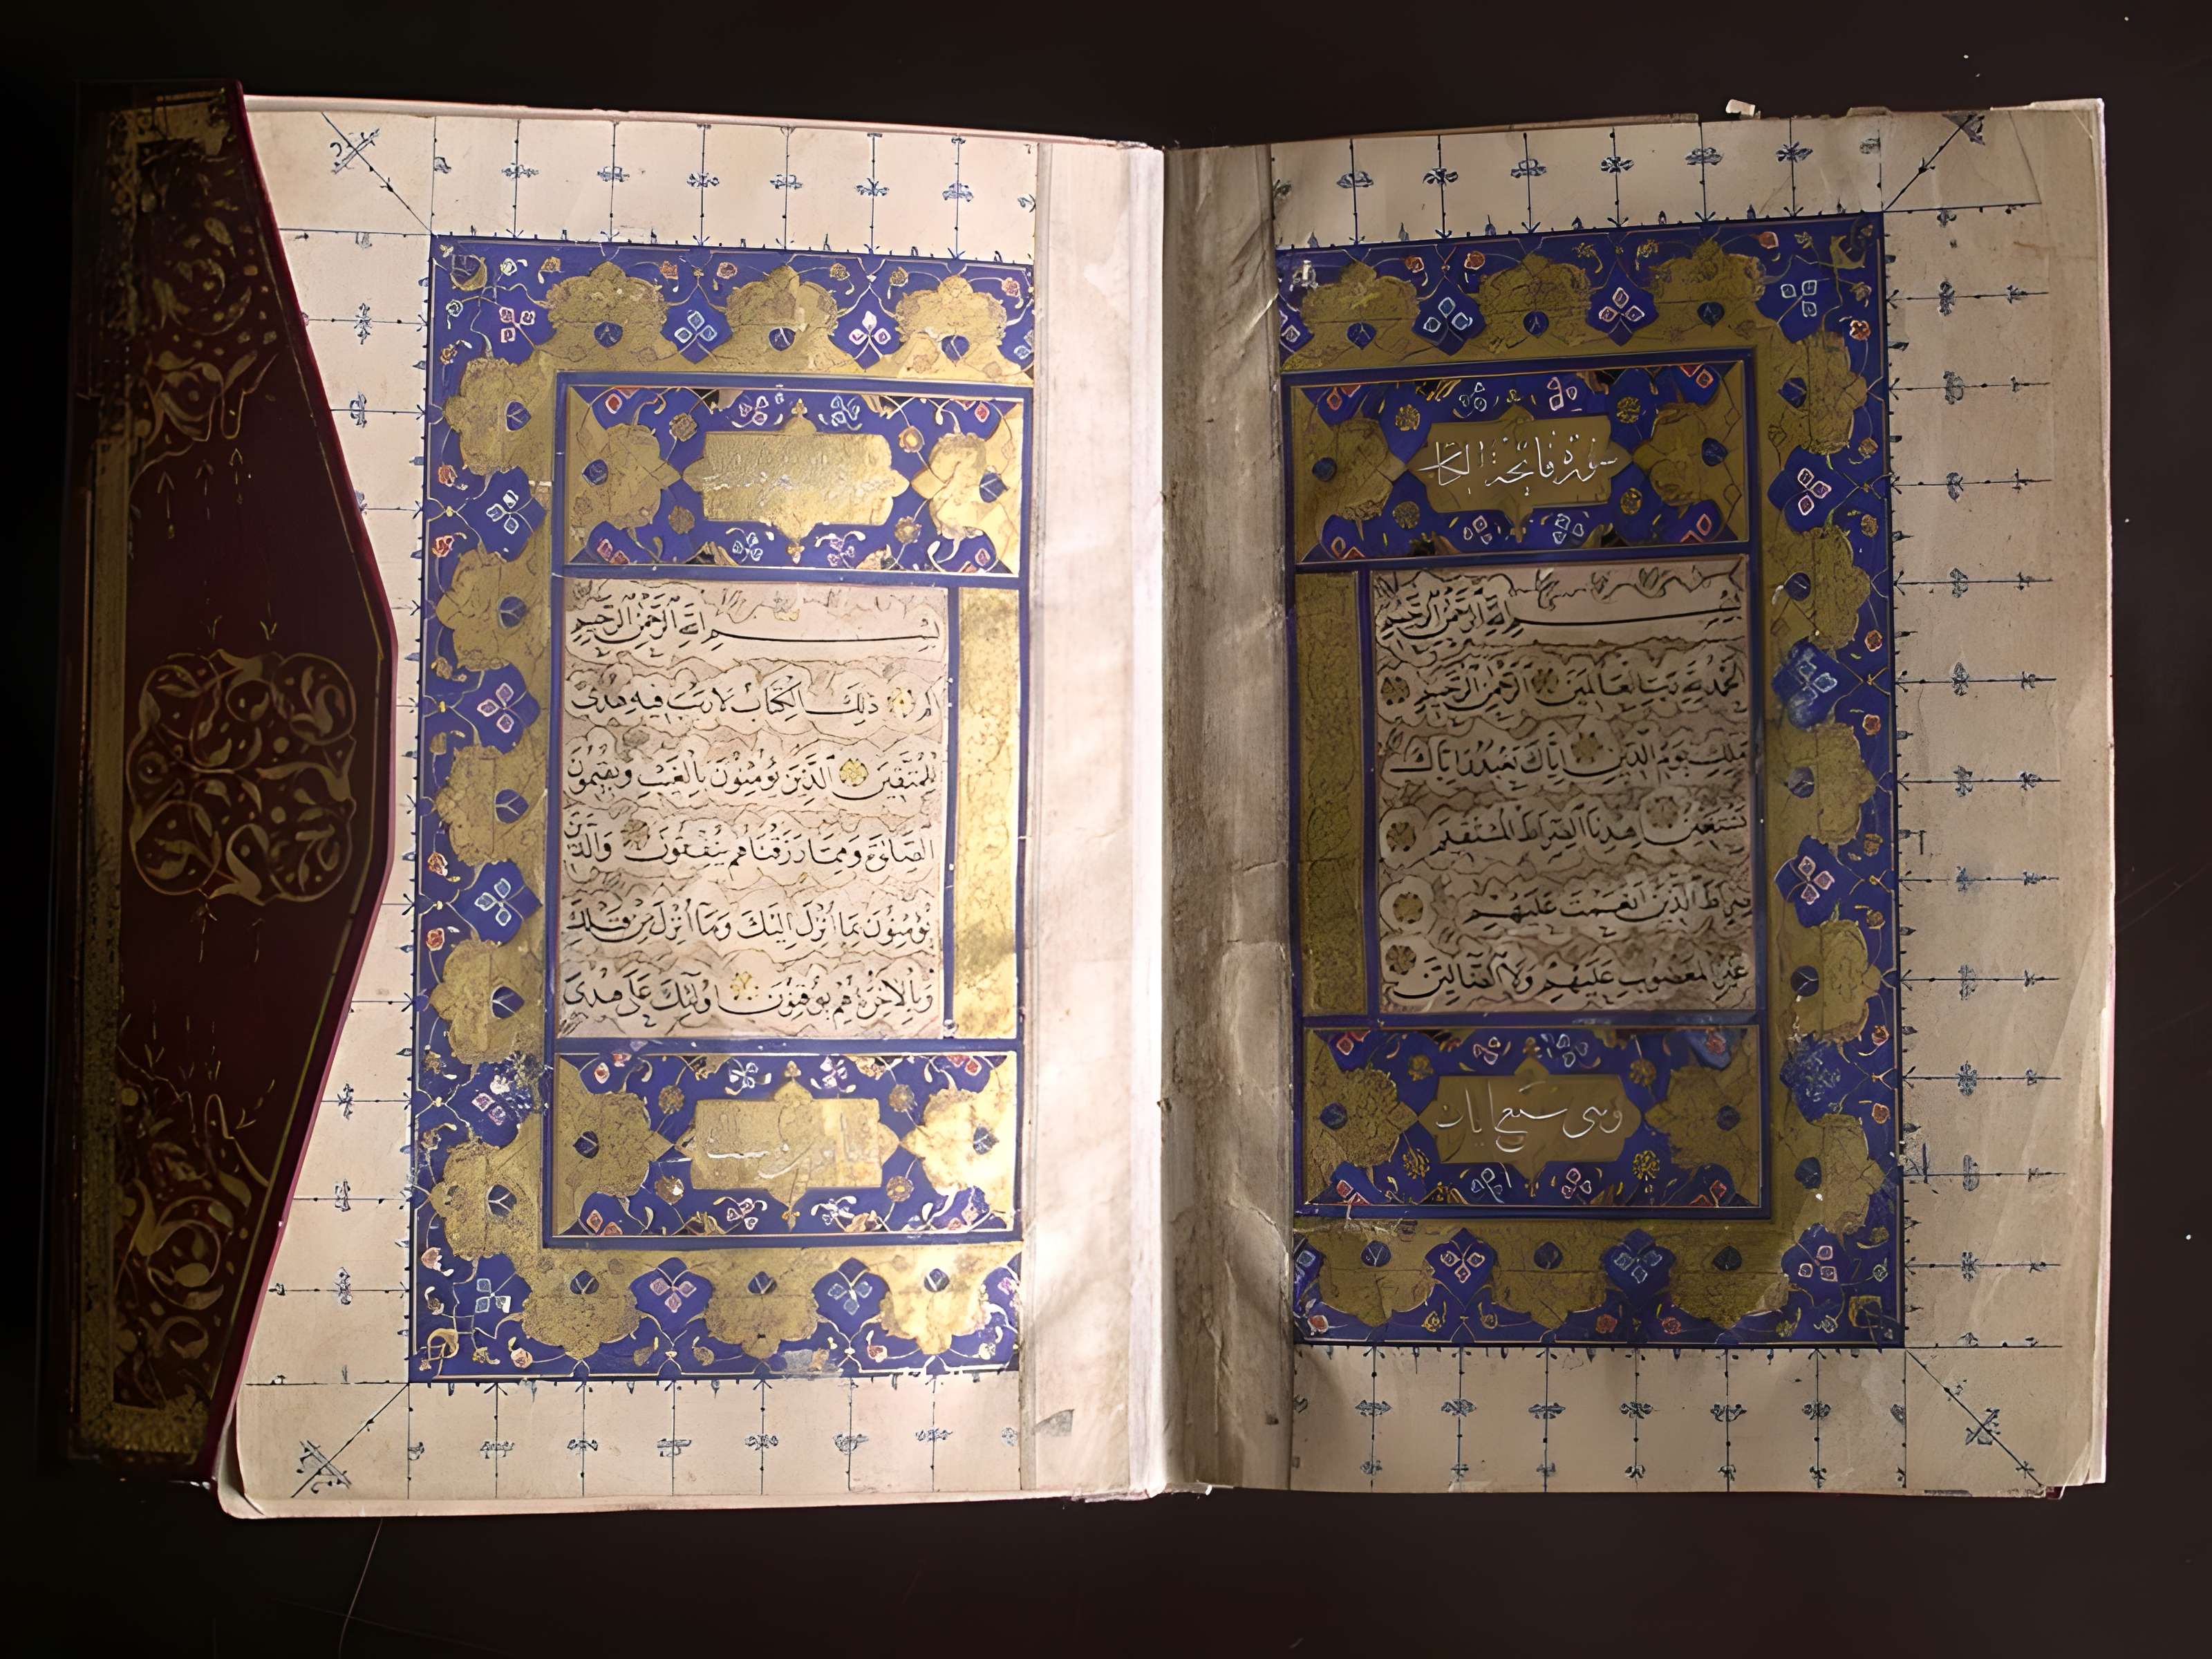 سورة فاتحة الكتاب
بسم الله الرحمن الرحيم
الحمد لله رب العالمين الرحمن الرحيم
ملك يوم الدين اياك نعبد واياك
نستعين اهدنا الصراط المستقيم
صراط الذين انعمت عليهم
غير المغضوب عليهم ولا الضالين
وهي سبع ايات
سورة
بسم الله الرحمن الرحيم
الم ذلك الكتاب لا ريب فيه هدى
للمتقين الذين يؤمنون بالغيب ويقيمون
الصلوة ومما رزقناهم ينفقون والذين
يؤمنون بما انزل اليك وما انزل من قبلك
وبالاخرة هم يوقنون اولئك على هدى